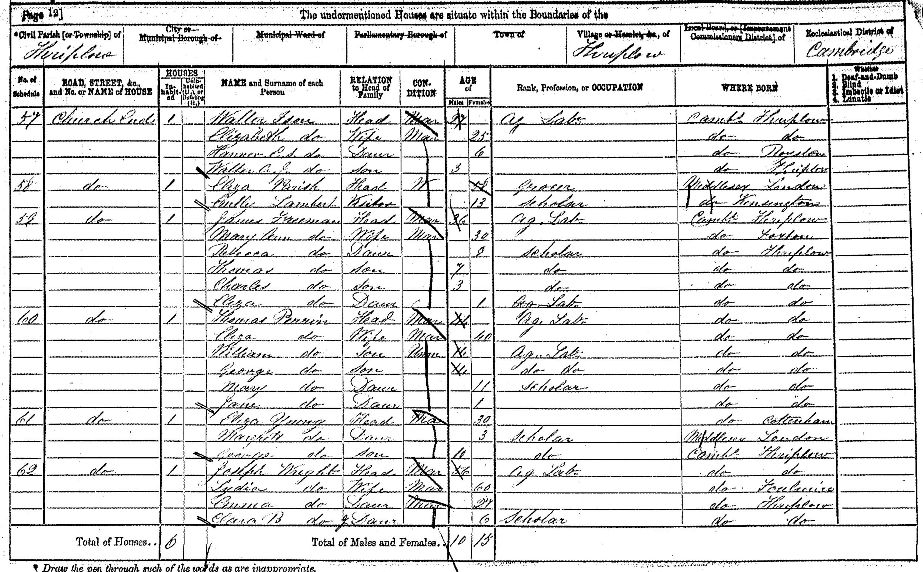 Page 12]
The undermentioned Houses are situate within the Boundaries of the
Civil Parish [or Township] of
City or Municipal Borough of
Municipal Ward of
Parliamentary Borough of
Town of
Village or Hamlet, &c., of
Local Board, or [Improvement Commissioners District] of
Ecclesiastical District of
Thriplow Thriplow Cambridge
No. of Schedule
ROAD, STREET, &c., and No. or NAME of HOUSE
HOUSES
Inhabited
NAME and Surname of each Person
RELATION to Head of Family
CONDITION
AGE of
Males Females
Rank, Profession, or OCCUPATION
WHERE BORN
Whether
1. Deaf-and-Dumb
2. Blind
3. Imbecile or Idiot
4. Lunatic
57 Church End 1 Walter Head Mar Ag Lab Camb. Thriplow
Elizabeth do Wife Mar 25 do do
do Daur 6 do Royston
Walter do son 3 do Thriplow
58 do 1 Eliza Parish Head W Grocer Middlesex London
Lambert Visitor 13 Scholar do Kensington
59 do 1 James Freeman Head Mar 36 Ag. Lab Camb. Thriplow
Mary Ann do Wife Mar 30 do Foxton
Rebecca do Daur 8 Scholar do Thriplow
Thomas do son 7 do do do
Charles do son 3 do do do
Eliza do Daur 1 Ag Lab do do
60 do 1 Thomas Perrin Head Mar Ag. Lab do do
Eliza do Wife Mar 40 do do
William do Son Unm 16 Ag. Lab do do
George do son do do do do
Mary do Daur 11 Scholar do do
Jane do Daur 1 do do
61 do 1 Eliza Young Head Mar 30 do Cottenham
do Daur 3 Scholar Middlesex London
George do son 10 do Camb. Thriplow
62 do 1 Joseph Wright Head Mar 66 Ag Lab do do
Lydia do Wife Mar 60 do Foulmire
Emma do Daur Mar 24 do Thriplow
Clara B do g Daur 6 Scholar do do
Total of Houses.. 6 Total of Males and Females.. 10 15
* Draw the pen through such of the words as are inappropriate.